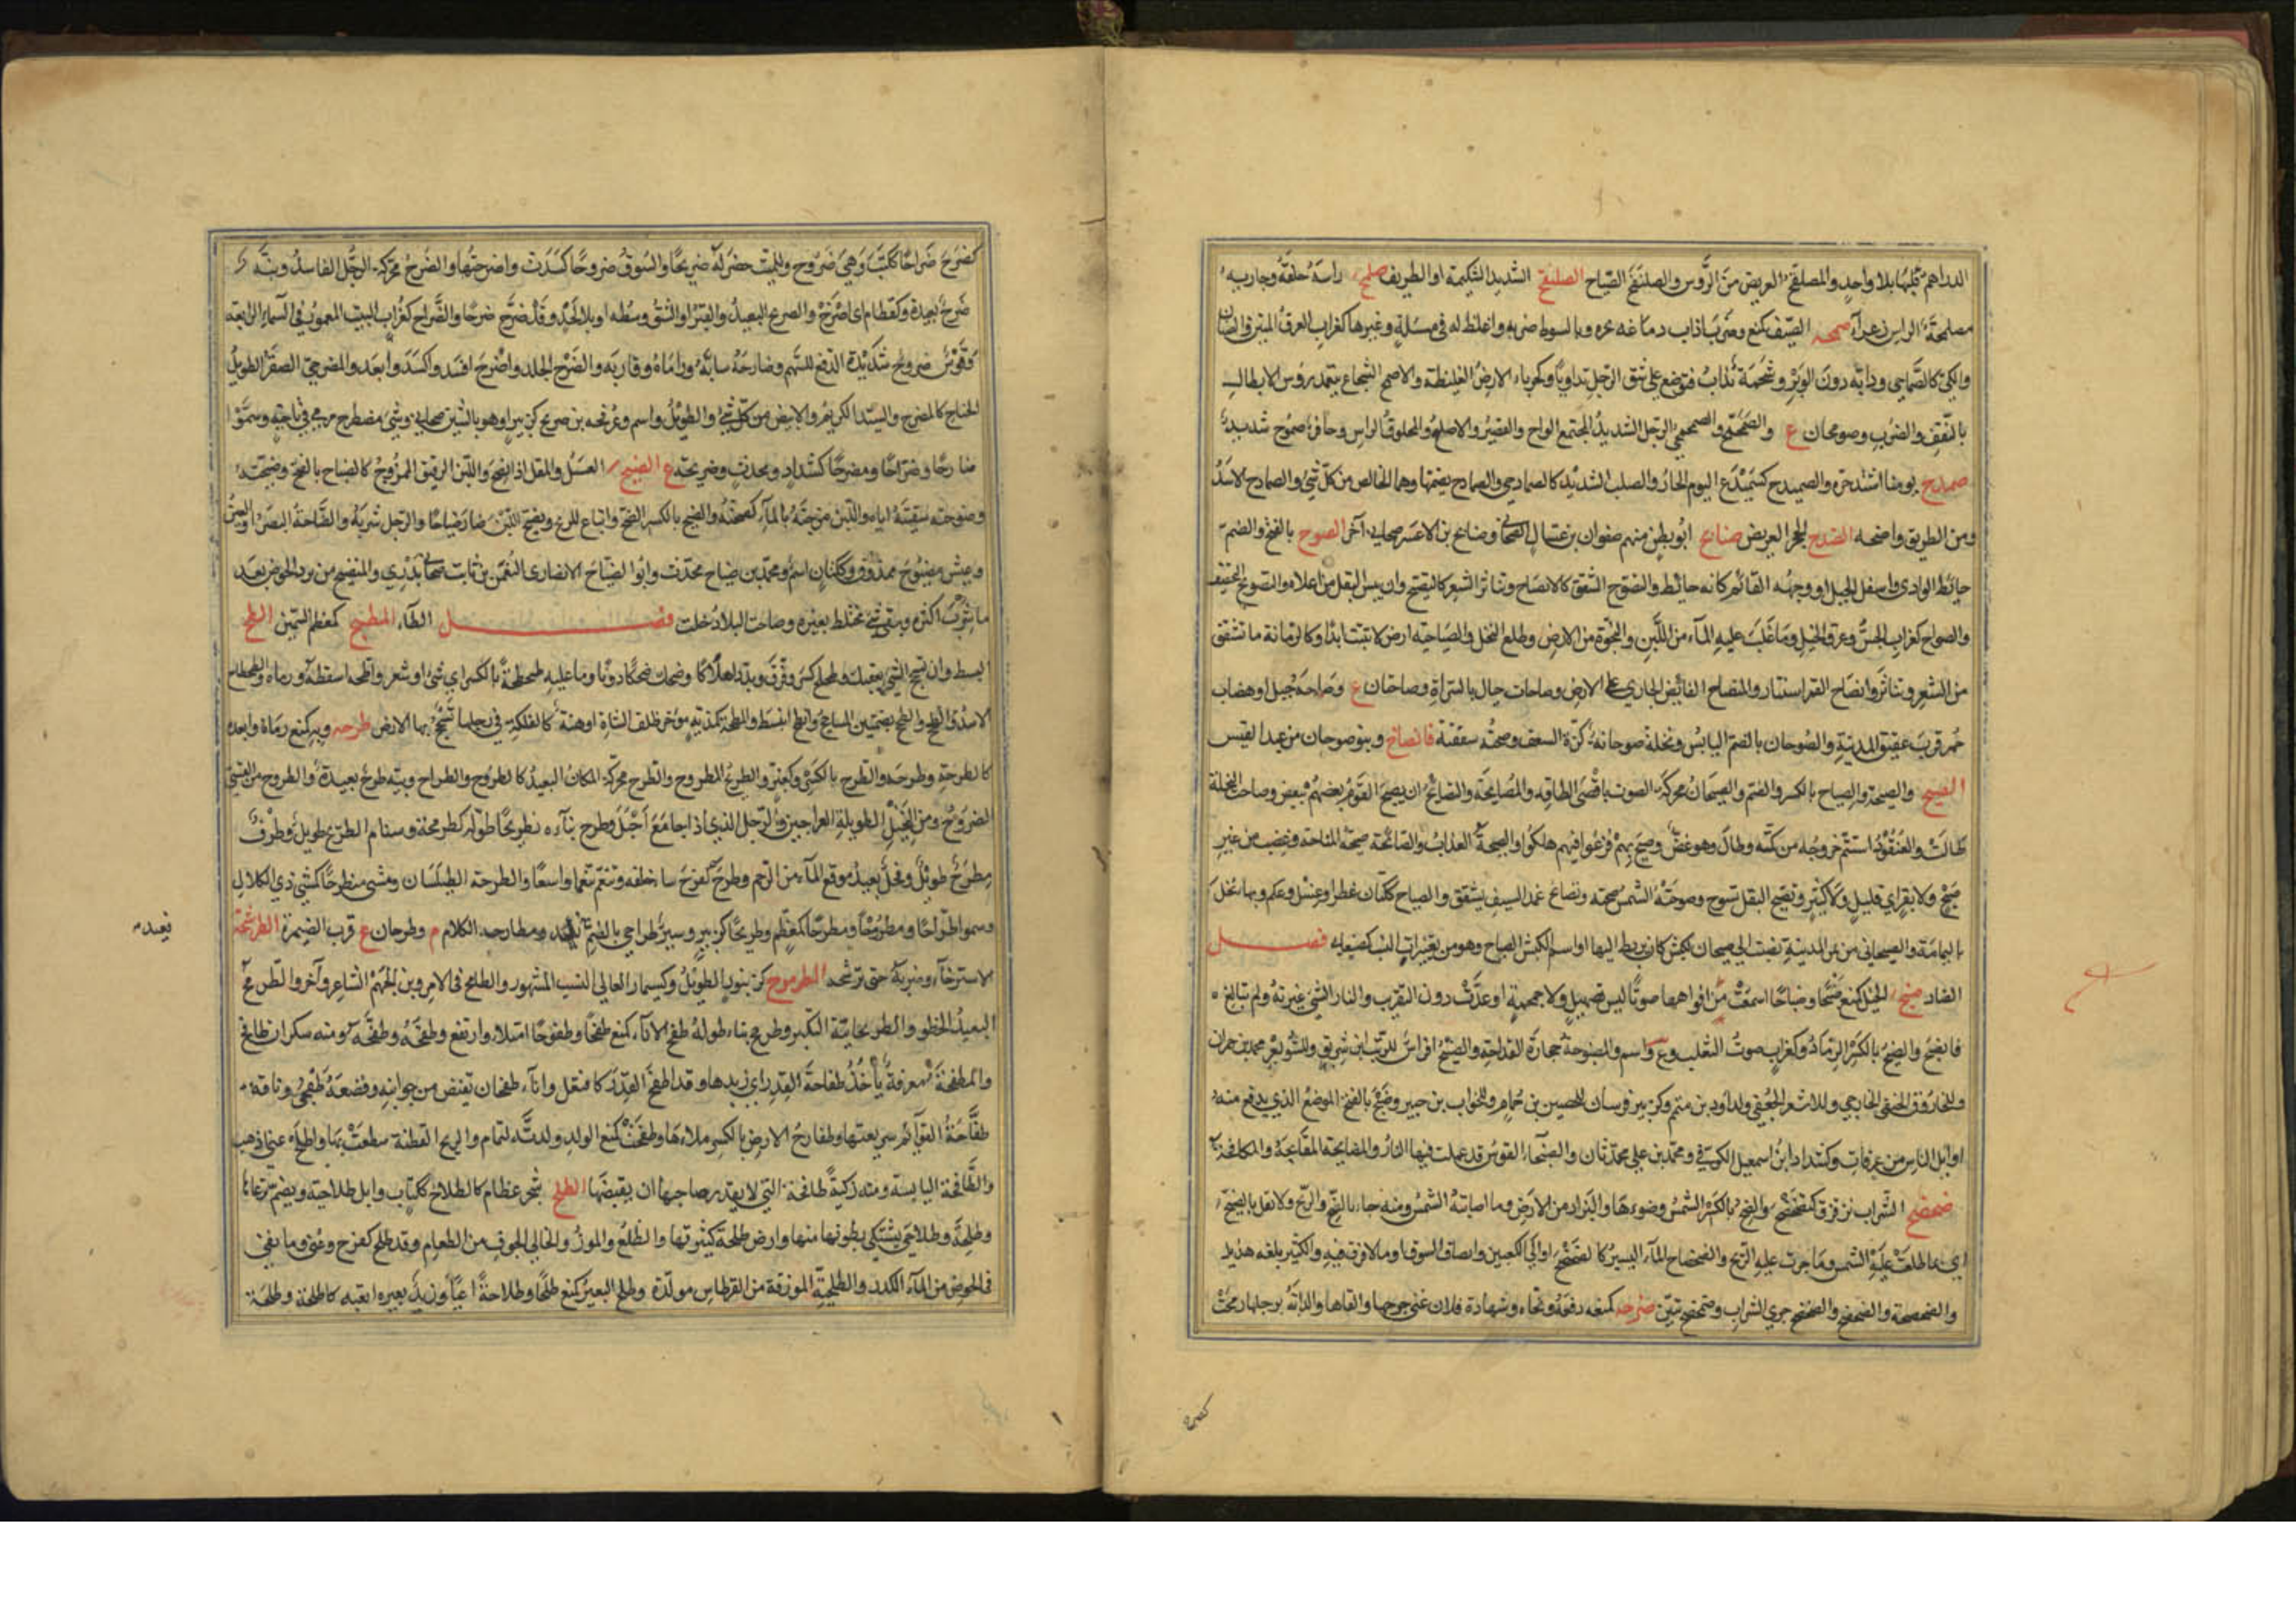 الدراهم قلبها بلا واحد والمصلفح العريض من الرؤس والصلنفح الصياح الصلنقح الشديد الشكيمة او الظريف صلمح راسه حلقه وجاريه
مصلمحة الراس زعراء صمحه الصيف كمنع وضرب اذاب دماغه بحره وبالسوط ضربه واغلظ له فى مسئلة وغيرها كغراب العرق المنتن والصنان
والكى كالصماحى ودابة دون الوبر وشحمة تذاب فتوضع على شق الرجل تداويا وكحرباء الارض الغليظة والاصمح الشجاع يتعمد رؤس الابطال
بالنقف والضرب وصومحان ع والصمحمح والصمحمحى الرجل الشديد المجتمع الالواح والقصير والاصلع والمحلوق الراس وحافر صموح شديد
صمدح يومنا اشتد حره والصميدح كسميدع اليوم الحار والصلب الشديد كالصمادحى والصمادح بضمها وهما الخالص من كل شئ والصمادح الاسد
ومن الطريق واضحه الصندح الحجر العريض صنابح ابو بطن منهم صفوان بن عسال الصحابى وصنابح بن الاعسر صحابى آخر الصوح بالفتح والضم
حائط الوادى واسفل الجبل او وجهه القائم كانه حائط والصوح التشقق كالانصياح وتناثر الشعر كالتصيح وان ييبس البقل من اعلاه والتصويح التجفيف
والصواح كغراب الجص وعرق الخيل وما غلب عليه الماء من اللبن والنجوة من الارض وطلع النخل والصياحة ارض لا تنبت ابدا وكالرمانة ما تشقق
من الشعر وتناثر وانصاح القمر استنار والمنصاح الفائض الجارى على الارض وصاحات جبال بالسراة وصاحتان ع وصاحة جبل او هضاب
حمر قرب عقيق المدينة والصوحان بالضم اليابس ونخلة صوحانة كزة السعف وصحته شققته فانصاح وبنو صوحان من عبد القيس
الصيح والصيحة والصياح بالكسر والضم والصيحان محركة الصوت باقصى الطاقة والمصايحة والتصايح ان يصيح القوم بعضهم ببعض وصاحت النخلة
طالت والعنقود استتم خروجه من كمه وطال وهو غض وصيح بهم فزعوا وفيهم هلكوا والصيحة العذاب والصائحة صيحة المناحة وغضب من غير
صيح ولا نفر اى قليل ولا كثير وتصيح البقل تصوح وصوحته الشمس صيحته وتصايح غمد السيف تشقق والصياح ككتان عطر او غسل وعلم وبهاء نخل
باليمامة والصيحانى من تمر المدينة نسبت الى صيحان كبش كان يربط اليها او اسم الكبش الصياح وهو من تغييرات النسب كصنعانى فصل
الضاد ضبح الخيل كمنع ضبحا وضباحا اسمعت من افواهها صوتا ليس بصهيل ولا حمحمة او عدت دون التقريب والنار الشئ غيرته ولم تبالغ
فانضبح والضبح بالكسر الرماد وكغراب صوت الثعلب وع واسم والمضبوحة حجارة القداحة والضبيح افراس للريب ابن شريق وللشويعر محمد بن حمران
وللحازوق الحنفى الخارجى وللاسعر الجعفى ولداود بن متمم وكزبير فرسان للحصين بن حمام ولخوات بن جبير وضبح بالفتح الموضع الذى يدفع منه
اوائل الناس من عرفات وكشداد ابن اسمعيل الكوفى ومحمد بن على محدثان والضبحاء القوس قد عملت فيها النار والمضابحة المقابحة والمكافحة
ضحضح السراب ترقرق كتضحضح والضح بالكسر الشمس وضوءها والبراز من الارض وما اصابته الشمس ومنه جاء بالضح والريح ولا تقل بالضيح
اى بما طلعت عليه الشمس وما جرت عليه الريح والضحضاح الماء اليسير كالضحضح او الى الكعبين وانصاف السوق او ما لا غرق فيه والكثير بلغة هذيل
والضحضحة والضحضح والضحضح جرى السراب وضحضح تبين ضرحه كمنعه دفعه ونحاه وشهادة فلان عنى جرحها والقاها والدابة برجلها رمحت
كضرح
كضرح ضراحا ككتب وهى ضروح وللميت حفر له ضريحا والسوق ضروحا كسدت واضرحتها والضرح محركة الرجل الفاسد ونية
ضرح بعيدة وكقطام اى اضرح والضريح البعيد والقبر او الشق وسطه او بلا لحد وقد ضرح ضرحا والضراح كغراب البيت المعمور فى السماء الرابعة
وقوس ضروح شديدة الدفع للسهم وضارحه سابه وراماه وقاربه والضرح الجلد واضرح افسد واكسد وابعد والمضرحى الصقر الطويل
الجناح كالمضرح والسيد الكريم والابيض من كل شئ والطويل واسم وعرفجة بن ضريح كزبير او هو بالشين صحابى وشئ مضطرح مرمى فى ناحية وسموا
ضارحا وضراحا ومضرحا كشداد ومحدث وضريحة ع الضيح العسل والمقل اذا نضج واللبن الرقيق الممزوج كالضياح بالفتح وضيحته
وضوحته سقيته اياه واللبن مزجته بالماء كضحته والضيح بالكسر الضح واتباع للريح وتضيح اللبن صار ضياحا والرجل شربه والضاحة البصر او العين
وعيش مضيوح ممذوق وككتان اسم ومحمد بن ضياح محدث وابو الضياح الانصارى النعمن بن ثابت صحابى بدرى والمتضيح من يرد الحوض بعد
ما شرب اكثره وبقى شئ مختلط بغيره وضاحت البلاد خلت فصل الطاء المطبح كمعظم السمين الطح
البسط وان تسحج الشئ بعقبك وطحطح كسر وفرق وبدد اهلاكا وضحك ضحكا دونا وما عليه طحطحة بالكسر اى شئ او شعر واطحه اسقطه ورماه والطحطاح
الاسد والطح والطح بضمتين المساحج وانطح انبسط والمطحة كمذبة مؤخر ظلف الشاة او هنة كالفلكة فى رجلها تسحج بها الارض طرحه وبه كمنع رماه وابعده
كاطرحه وطرحه والطرح بالكسر وكقبر والطريح المطروح والطرح محركة المكان البعيد كالطروح والطراح ونية طرح بعيدة والطروح من القسى
الضروح ومن النخل الطويلة العراجين والرجل الذى اذا جامع احبل وطرح بناءه تطريحا طوله كطرمحه وسنام اطريح طويل وطرف
مطرح طويل وفحل بعيد موقع الماء من الرحم وطرح كفرح ساء خلقه وتنعم تنعما واسعا والطرحة الطيلسان ومشى متطرحا كمشى ذى الكلال
وسموا طراحا ومطروحا ومطرحا كمعظم وطريحا كزبير وسير طراحى بالضم بعيد ومطارحة الكلام م وطرحان ع قرب الصيمرة الطرشحة
بعيد
الاسترخاء وضربه حتى طرشحه الطرموح كزنبور الطويل وكسنمار العالى النسب المشهور والطامح فى الامر وبن الجهم الشاعر وآخر والطرمح
البعيد الخطو والطرمحانية التكبر وطرمح بناءه طوله طفح الاناء كمنع طفحا وطفوحا امتلا وارتفع وطفحه وطفحه ومنه سكران طافح
والمطفحة مغرفة يأخذ طفاحة القدر اى زبدها وقد اطفح القدر كافتعل واناء طفحان يفيض من جوانبه وقصعة طفحى وناقة
طفاحة القوائم سريعتها وطفاح الارض بالكسر ملاءها وطفحت كمنع الولد ولدته لتمام والريح القطنة سطعت بها واطفح عنى اذهب
والطافحة اليابسة ومنه ركبة طافحة التى لا يقدر صاحبها ان يقبضها الطلح شجر عظام كالطلاح ككتاب وابل طلاحية ويضم ترعاها
وطلحة وطلاحى يشتكى بطونها منها وارض طلحة كثيرتها والطلع والموز والخالى الجوف من الطعام وقد طلح كفرح وعنى وما بقى
فى الحوض من الماء الكدر والطلحية الورقة من القرطاس مولدة وطلح البعير كمنع طلحا وطلاحة اعيا وزيد بعيره اتعبه كاطلحه وطلحه